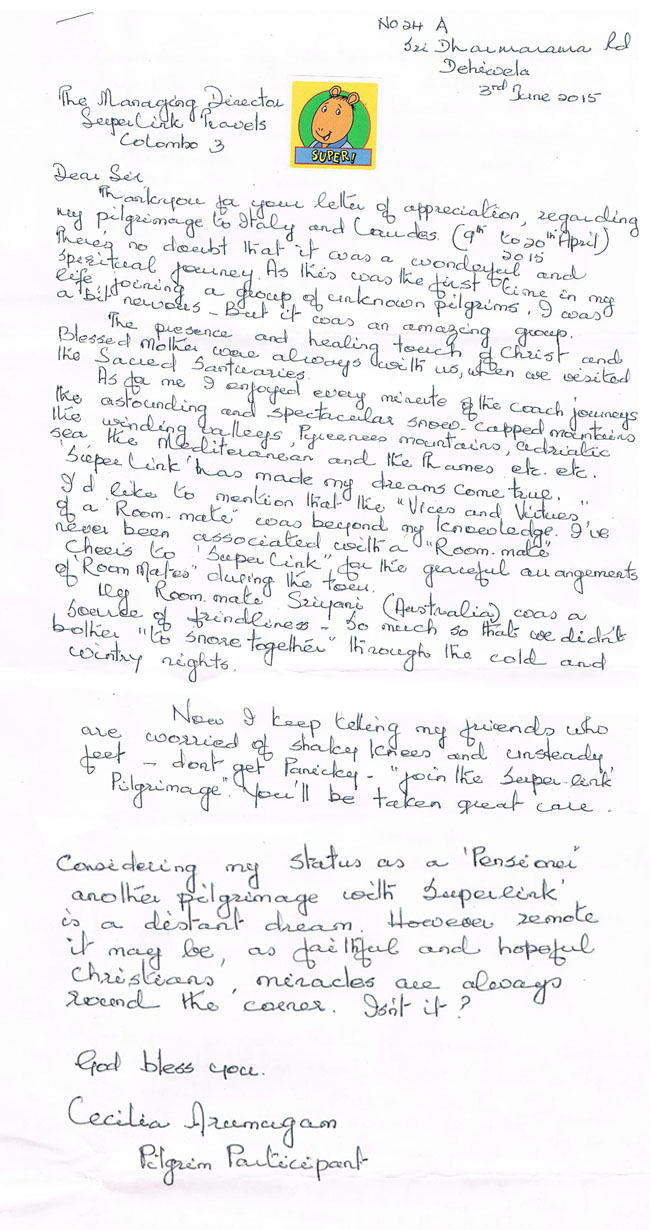 No 24 A
Sri Dharmarama Rd
Dehiwela
3rd June 2015
The Managing Director
SuperLink Travels
Colombo 3
SUPER!
Dear Sir
Thankyou for your letter of appreciation, regarding
my pilgrimage to Italy and Lourdes. (9th to 20th April)
2015
There's no doubt that it was a wonderful and
spiritual journey. As this was the first time in my
life, joining a group of unknown pilgrims, I was
a bit nervous - But it was an amazing group.
The presence and healing touch of Christ and
Blessed Mother were always with us, when we visited
the Sacred Santuaries.
As for me I enjoyed every minute of the coach journeys
the astounding and spectacular snow-capped mountains
the winding valleys, Pyreenees mountains, adriatic
sea the Mediteranean and the Thames etc. etc.
'SuperLink' has made my dreams come true.
I'd like to mention that the "Vices and Virtues"
of a "Room-mate" was beyond my knowledge. I've
never been associated with a "Room-mate"
Cheers to 'SuperLink" for the graceful arrangements
of "Room Mates" during the tour.
My Room-mate Sriyani (Australia) was a
source of frindliness - So much so that we didn't
bother "to snore together" through the cold and
wintry nights.
Now I keep telling my friends who
are worried of shaky knees and unsteady
feet - dont get Panicky - "join the Super-link'
Pilgrimage". You'll be taken great care.
Considering my status as a 'Pensioner'
another pilgrimage with Superlink'
is a distant dream. However remote
it may be, as faithful and hopeful
Christians, miracles are always
round the corner. Isn't it?
God bless you.
Cecilia Arumugam
Pilgrim Participant